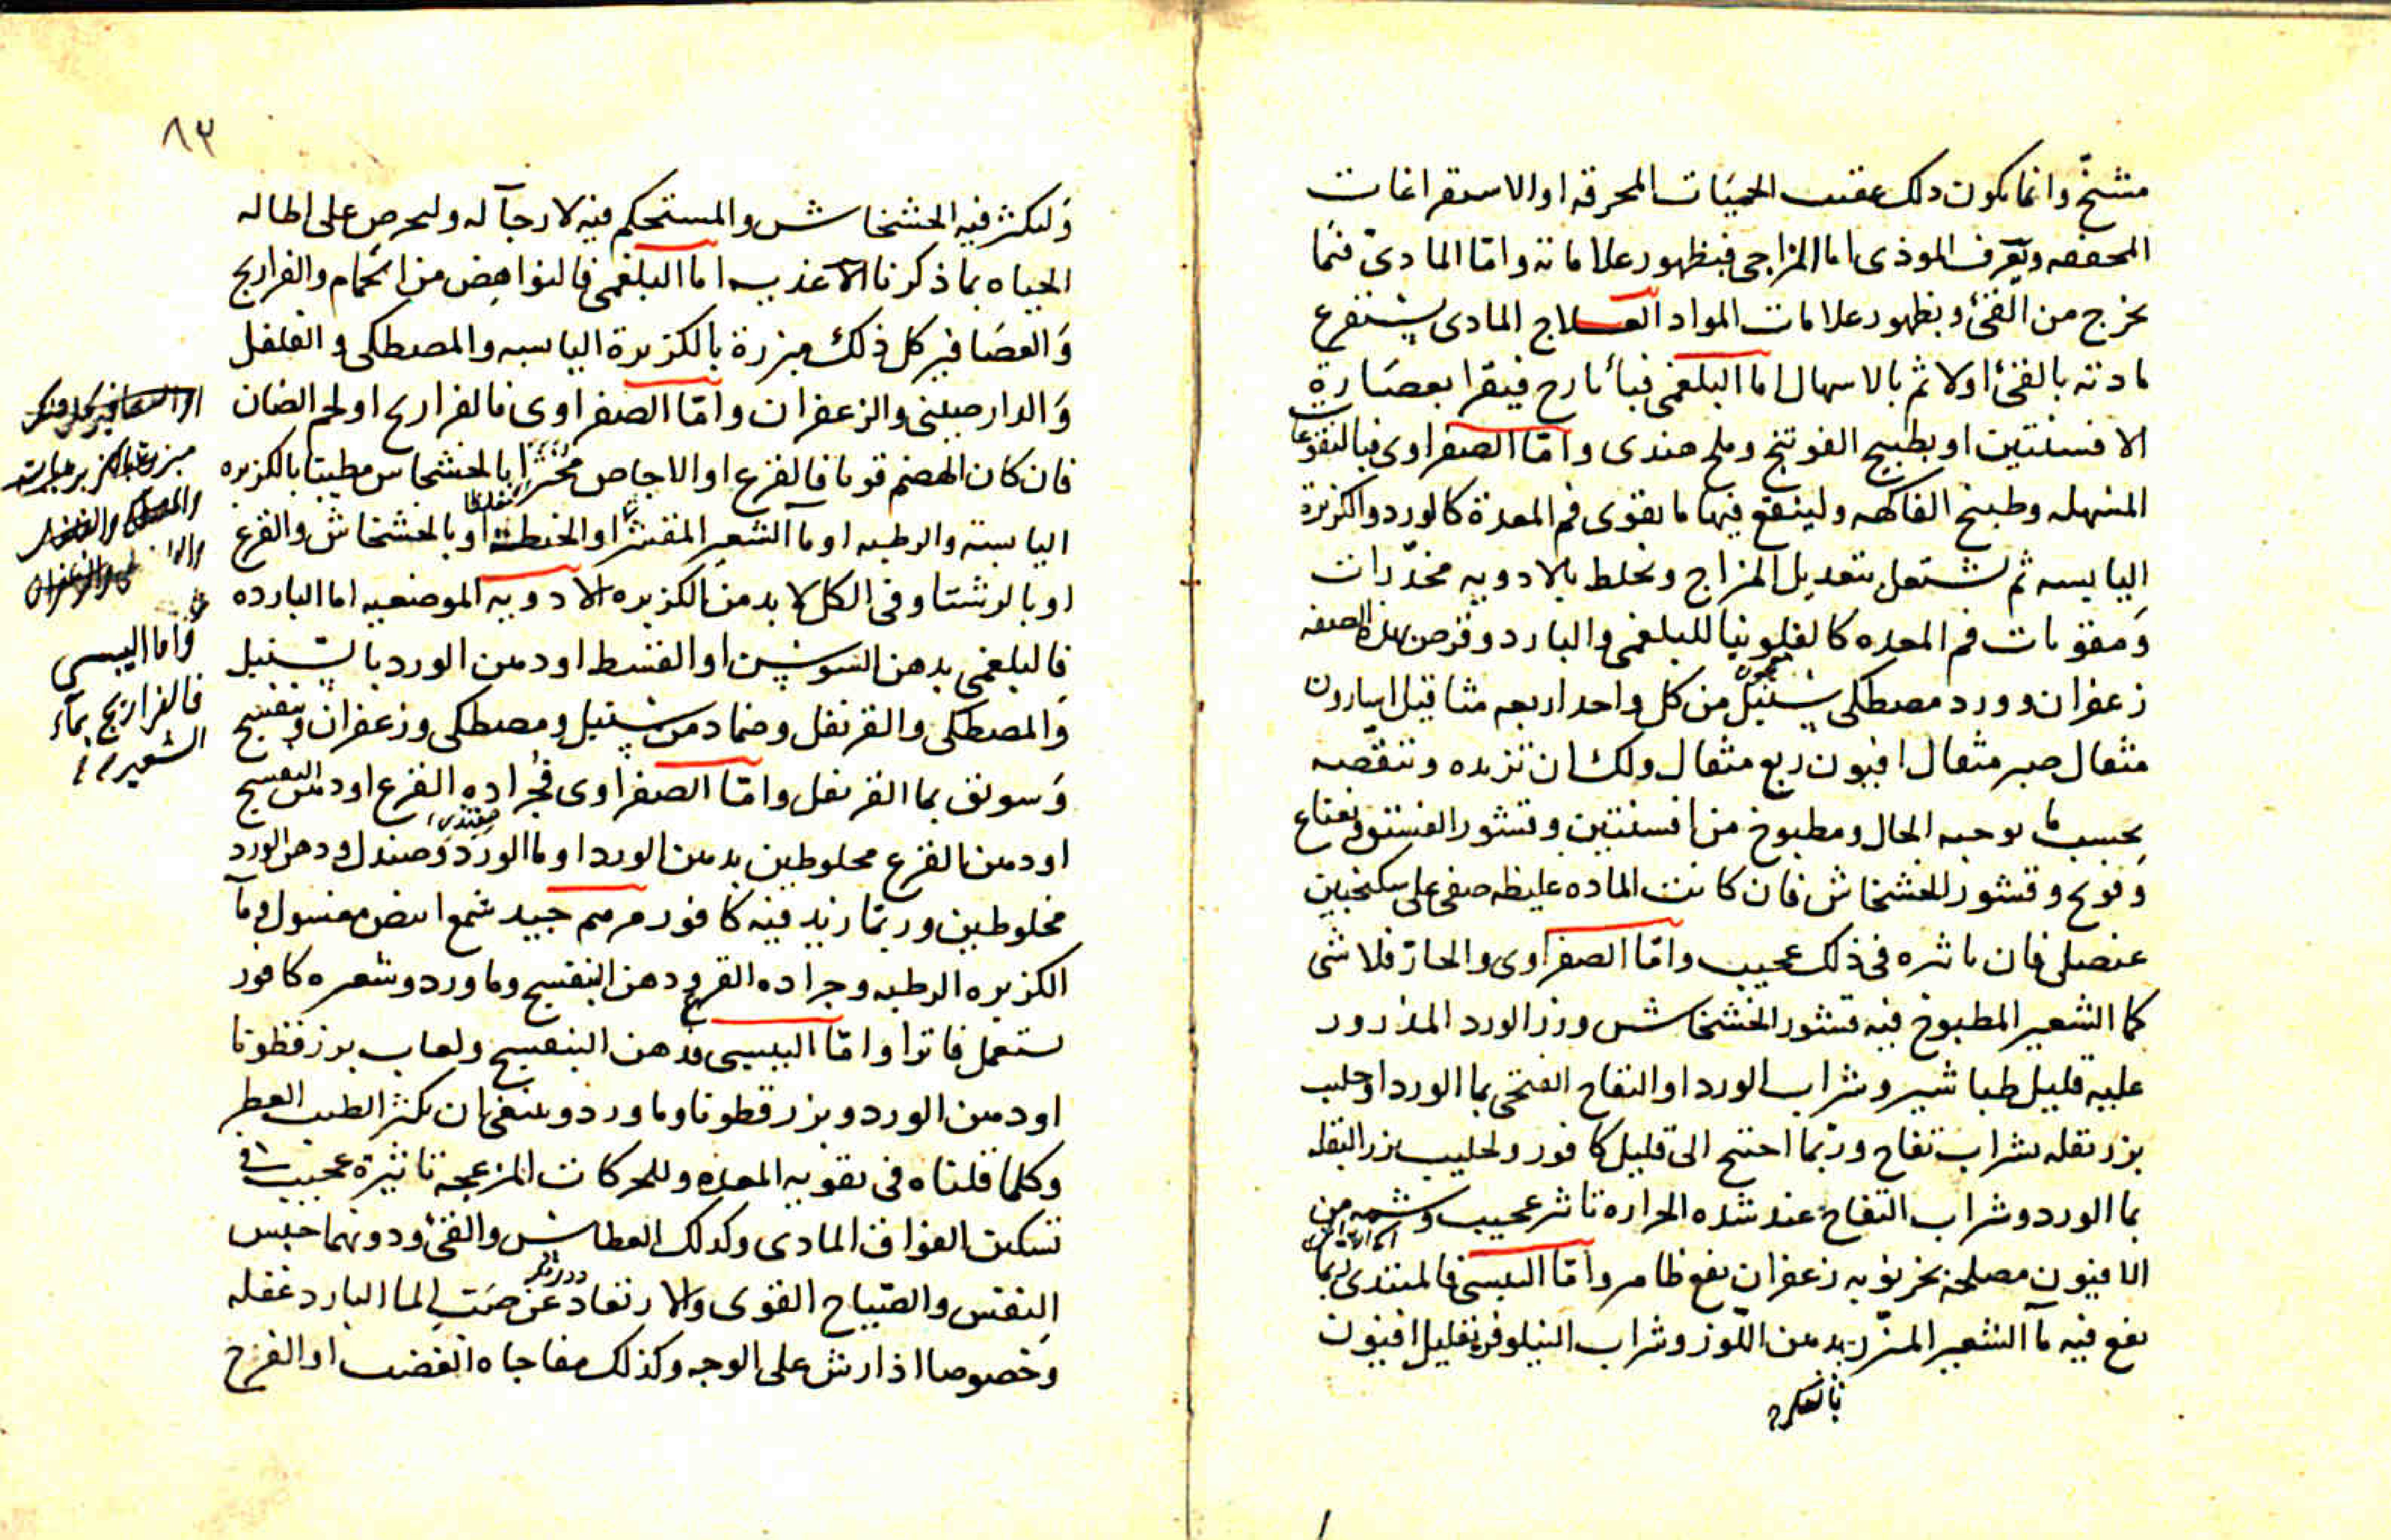 متشنج وانما يكون ذلك عقيب الحميات المحرقه او الاستفراغات
المجففه وتعرف الموذى اما المزاجى فبظهور علاماته وامّا المادىّ فبما
يخرج من القئ وبظهور علامات المواد العلاج المادى يستفرغ
مادته بالقئ اولا ثم بالاسهال اما البلغمى فبأيارج فيقرا بعصارة
الافسنتين او بطبيخ الفوتنج وملح هندى وامّا الصفراوى فبالنقوعات
المسهله وطبيخ الفاكهه ولينقع فيها ما يقوى فم المعدة كالورد والكزبرة
اليابسه ثم تشتغل بتعديل المزاج ويخلط بالادويه مخدّرات
ومقويات فم المعده كالفلونيا للبلغمى والبارد وقرص بهذه الصفه
زعفران وورد مصطكى سنبل من كل واحد اربعه مثاقيل اسارون
مثقال صبر مثقال افيون ربع مثقال ولك ان تزيده وتنقصه
بحسب ما يوجبه الحال ومطبوخ من افسنتين وقشور الفستق ونعناع
وفوتنج وقشور الخشخاش فان كانت الماده غليظه صفى على سكنجبين
عنصلى فان تاثيره فى ذلك عجيب وامّا الصفراوى والحارّ فلا شى
كما الشعير المطبوخ فيه قشور الخشخاش وزر الورد المذرور
عليه قليل طباشير وشراب الورد او التفاح الفتحى بما الورد او حليب
بزر بقله بشراب تفاح وربّما احتيج الى قليل كافور ولحليب بزر البقله
بما الورد وشراب التفاح عند شده الحراره تاثير عجيب وشمه من
الافيون مصلحة بخرنوبه زعفران نفع ظاهر وامّا اليبسى فالمبتدى ربما
نفع فيه مآ الشعير المبزّر بدهن اللّوز وشراب النيلوفر بقليل افيون
٨٣
وليكثر فيه الخشخاش والمستحكم فيه لا رجآ له وليحرص على اطاله
الحياه بما ذكرنا الاغذيه اما البلغمى فالنواهض من الحمام والفراريج
والعصافير كل ذلك مبزرة بالكزبرة اليابسه والمصطكى والفلفل
والدارصينى والزعفران وامّا الصفراوى فالفراريج او لحم الضان
فان كان الهضم قويا فالقرع او الاجاص محثرا بالخشخاس مطيبا بالكزبره
اليابسة والرطبه او مآ الشعير المقشر او الحنطة او بالخشخاش والقرع
او بالرشتا وفى الكل لا بد من الكزبره الادويه الموضعيه اما البارده
فالبلغمى بدهن السوسن او القسط او دهن الورد بالسنبل
والمصطكى والقرنفل وضماد من سنبل ومصطكى وزعفران وبنفسج
وسويق بما القرنفل وامّا الصفراوى فجراده القرع او دهن البنفسج
او دهن القرع مخلوطين بدهن الورد او ما الورد وصندل ودهن الورد
مخلوطين وربّما زيد فيه كافور مرهم جيد شمع ابيض مغسول فى مآ
الكزبره الرطبه وجراده القرع دهن البنفسج وماورد وشعره كافور
يستعمل فاترا وامّا اليبسى فدهن البنفسج ولعاب بزرقطونا
او دهن الورد وبزرقطونا وماورد وينبغى ان يكثر الطيب العطر
وكلما قلناه فى تقويه المعده وللحركات المزعجه تاثيرة عجيب فى
تسكين الفواق المادى وكذلك العطاس والقئ ودونهما حبس
النفس والصّياح القوى والارتعاد عن صبّ الما البارد غفله
وخصوصا اذا رش على الوجه وكذلك مفاجاه الغضب او الفزع
واما اليبسى
فالفراريج بمآء
الشعير